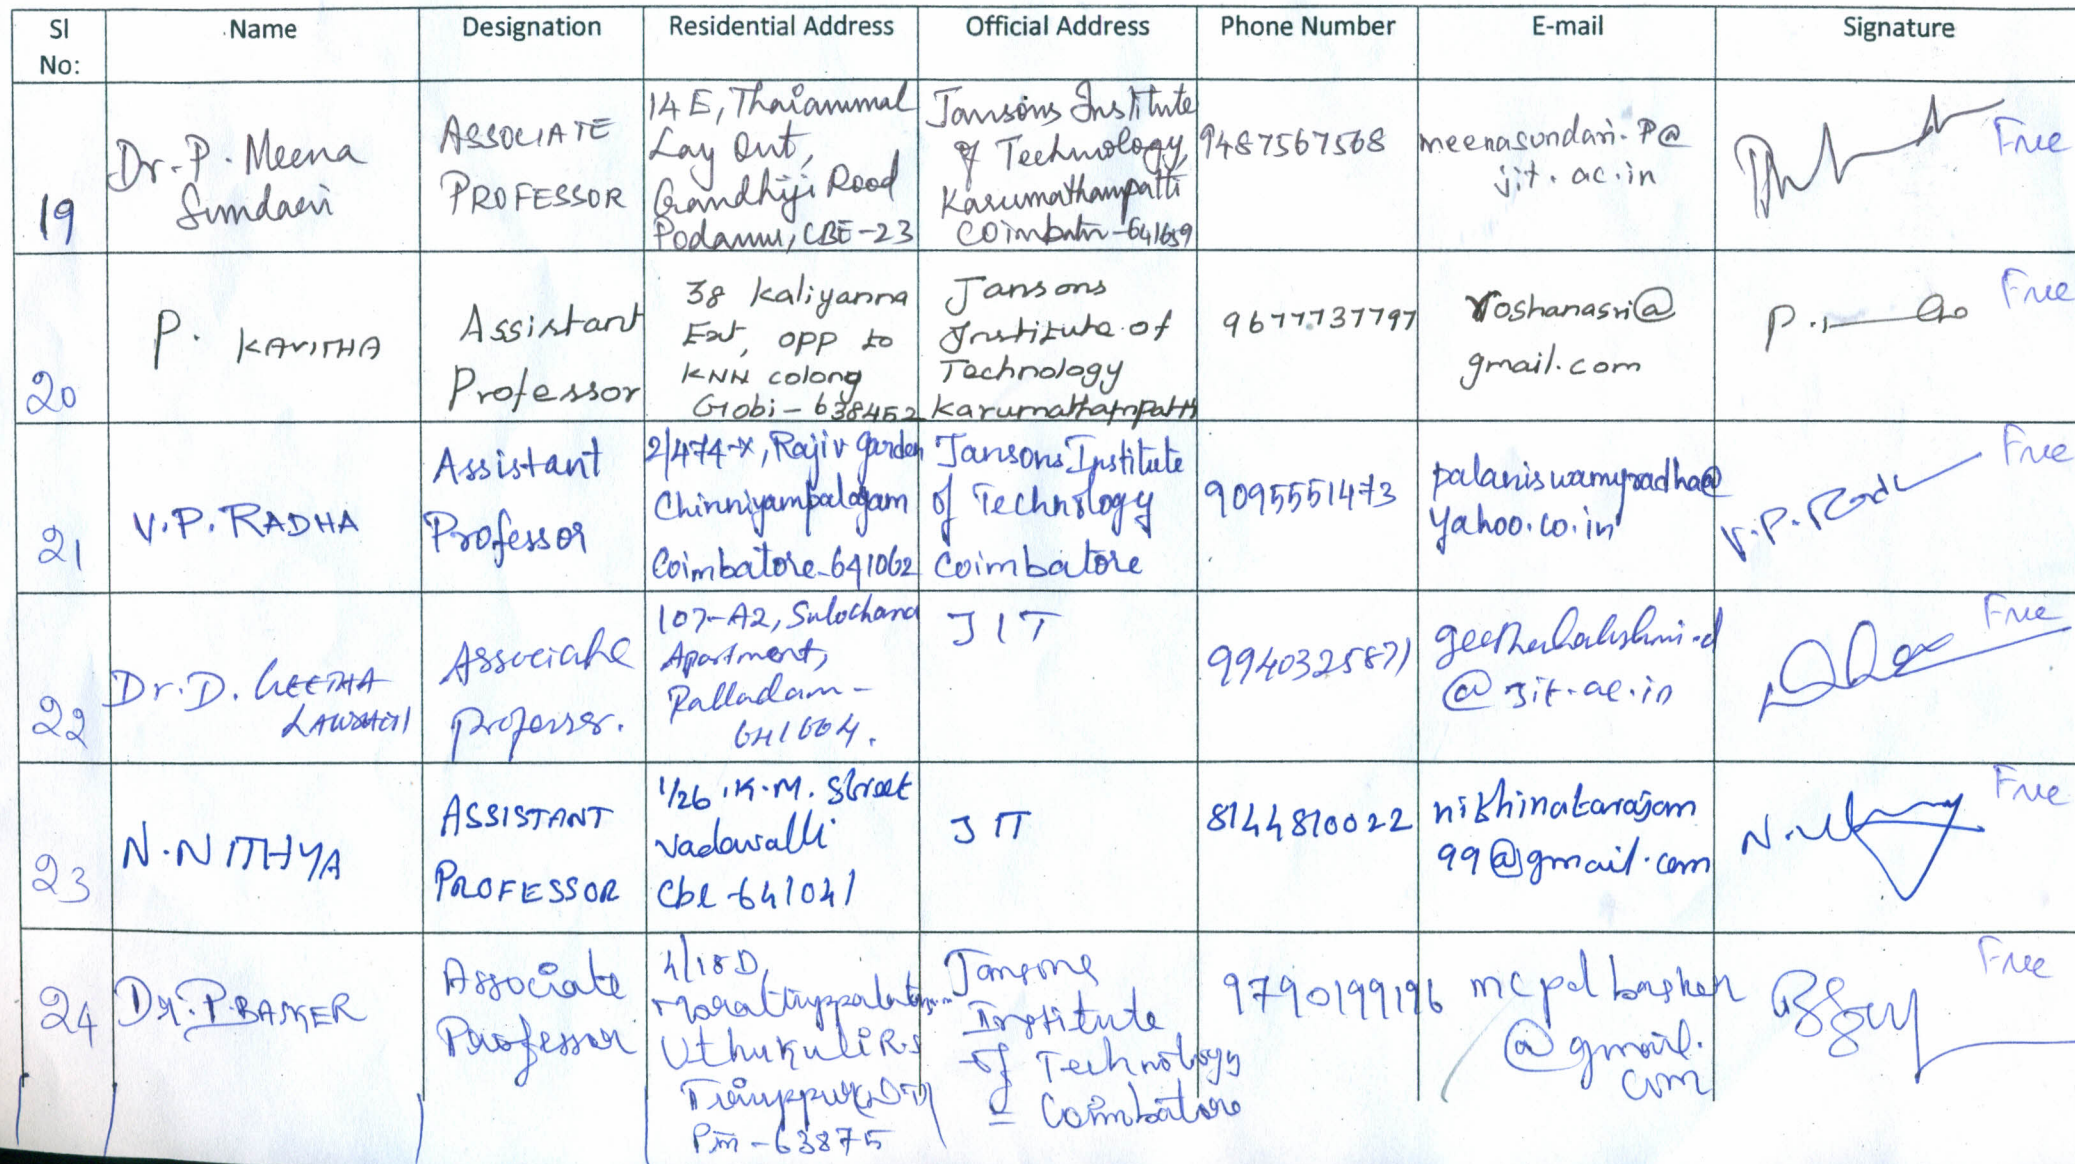 Sl No: Name Designation Residential Address Official Address Phone Number E-mail Signature
19
Dr. P. Meena
Sundari
ASSOCIATE
PROFESSOR
14 E, Thaiammal
Lay Out,
Gandhiji Road
Podanur, CBE-23
Jansons Institute
of Technology,
Karumathampatti
Coimbatore-641659
9487567568
meenasundari.P@
jit.ac.in
Free
20
P. KAVITHA
Assistant
Professor
38 Kaliyanna
Ext, opp to
KNN colony
Gobi-638452
Jansons
Institute of
Technology
Karumathampatti
9677737797
roshanasri@
gmail.com
Free
21
V.P. RADHA
Assistant
Professor
2/474-x, Rajiv garden
Chinniyampalayam
Coimbatore-641062
Jansons Institute
of Technology
Coimbatore
9095551473
palaniswamyradha@
yahoo.co.in
V.P. Radha
Free
22
Dr. D. GEETHA
Associate
Professor.
107-A2, Sulochana
Apartment,
Palladam-
641664.
JIT
9940325871
geethalakshmi.d
@jit.ac.in
Free
23
N. NITHYA
ASSISTANT
PROFESSOR
1/26, K.M. Street
Vadavalli
Cbe-641041
JIT
8144810022
nithinatarajan
99@gmail.com
Free
24
Dr. P. BASKER
Associate
Professor
4/18D,
Uthukuli RS
Pin-63875
Jansons
Institute
of Technology
- Coimbatore
9790199196
mcpdbasker
@gmail.
com
Free